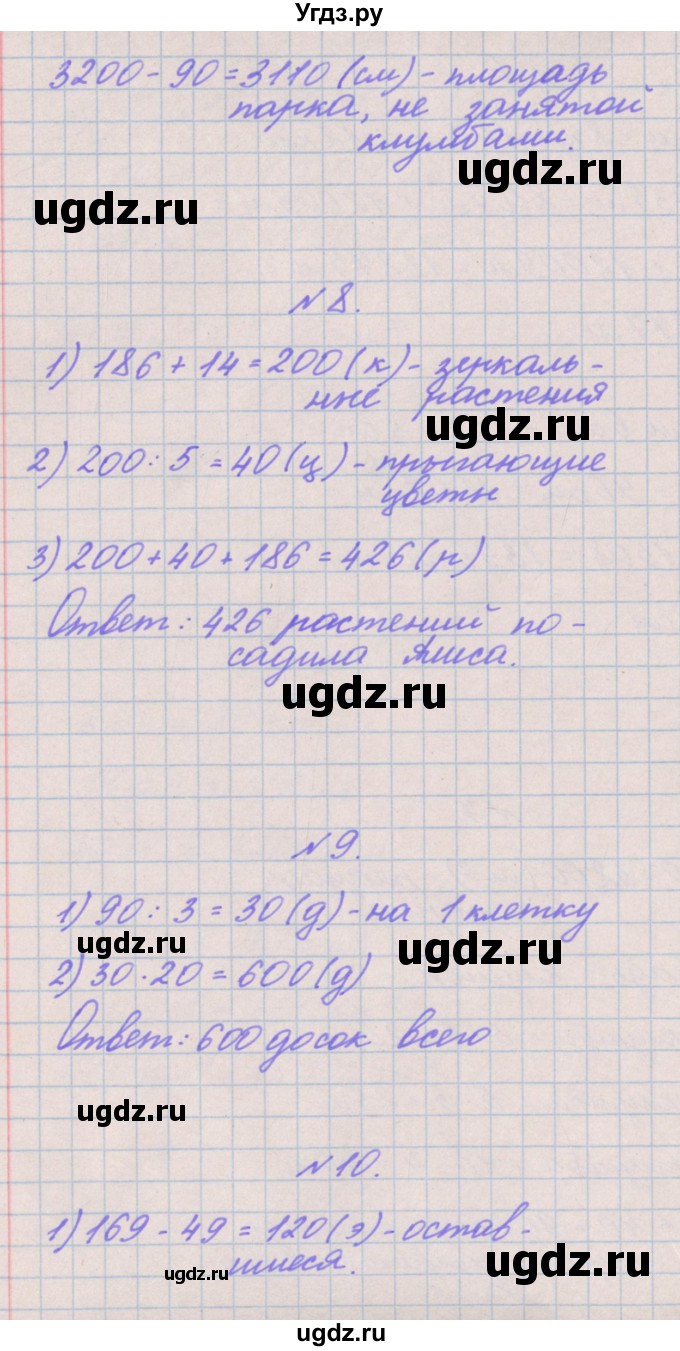 Угдз.ру
3200 - 90 = 3110 (см) - площадь
парка, не занятой
клумбами.
ugdz.ru
ugdz.ru
№ 8.
1) 186 + 14 = 200 (к) - зеркаль-
ные растения
ugdz.ru
2) 200 : 5 = 40 (ц) - прыгающие
цветы
3) 200 + 40 + 186 = 426 (р)
Ответ: 426 растений по-
садила Алиса.
ugdz.ru
№ 9.
1) 90 : 3 = 30 (д) - на 1 клетку
ugdz.ru
ugdz.ru
2) 30 · 20 = 600 (д)
Ответ: 600 досок всего
ugdz.ru
№ 10.
1) 169 - 49 = 120 (э) - остав-
шиеся.
ugdz.ru
ugdz.ru
ugdz.ru